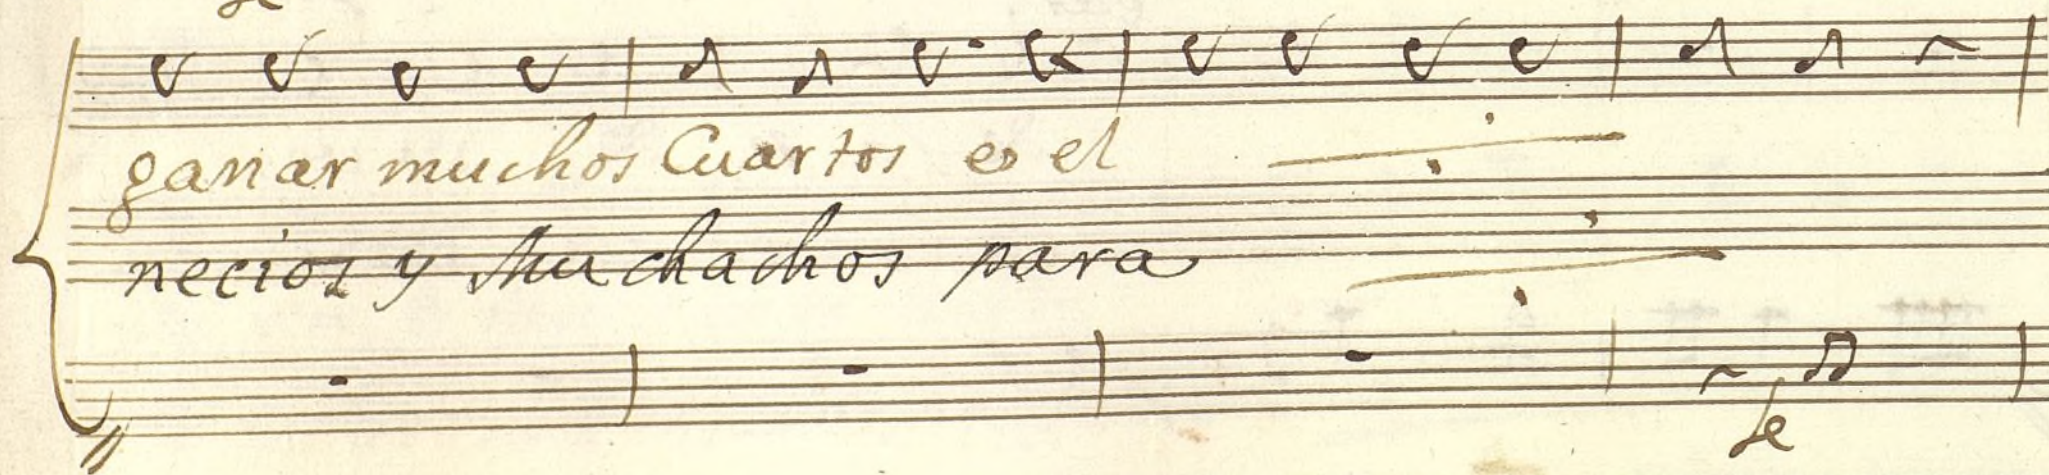 ganar muchos Cuartos es el
necios y Muchachos para